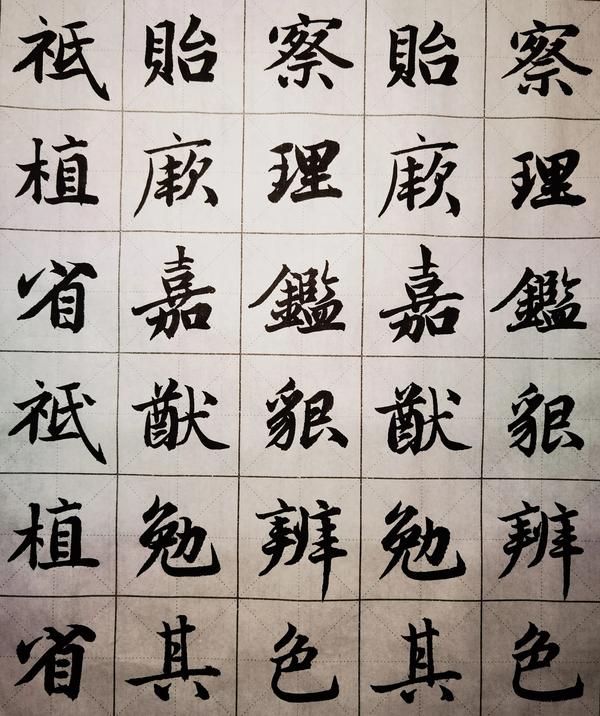 察理鑑貌辨色
貽厥嘉猷勉其
察理鑑貌辨色
貽厥嘉猷勉其
祗植省祗植省